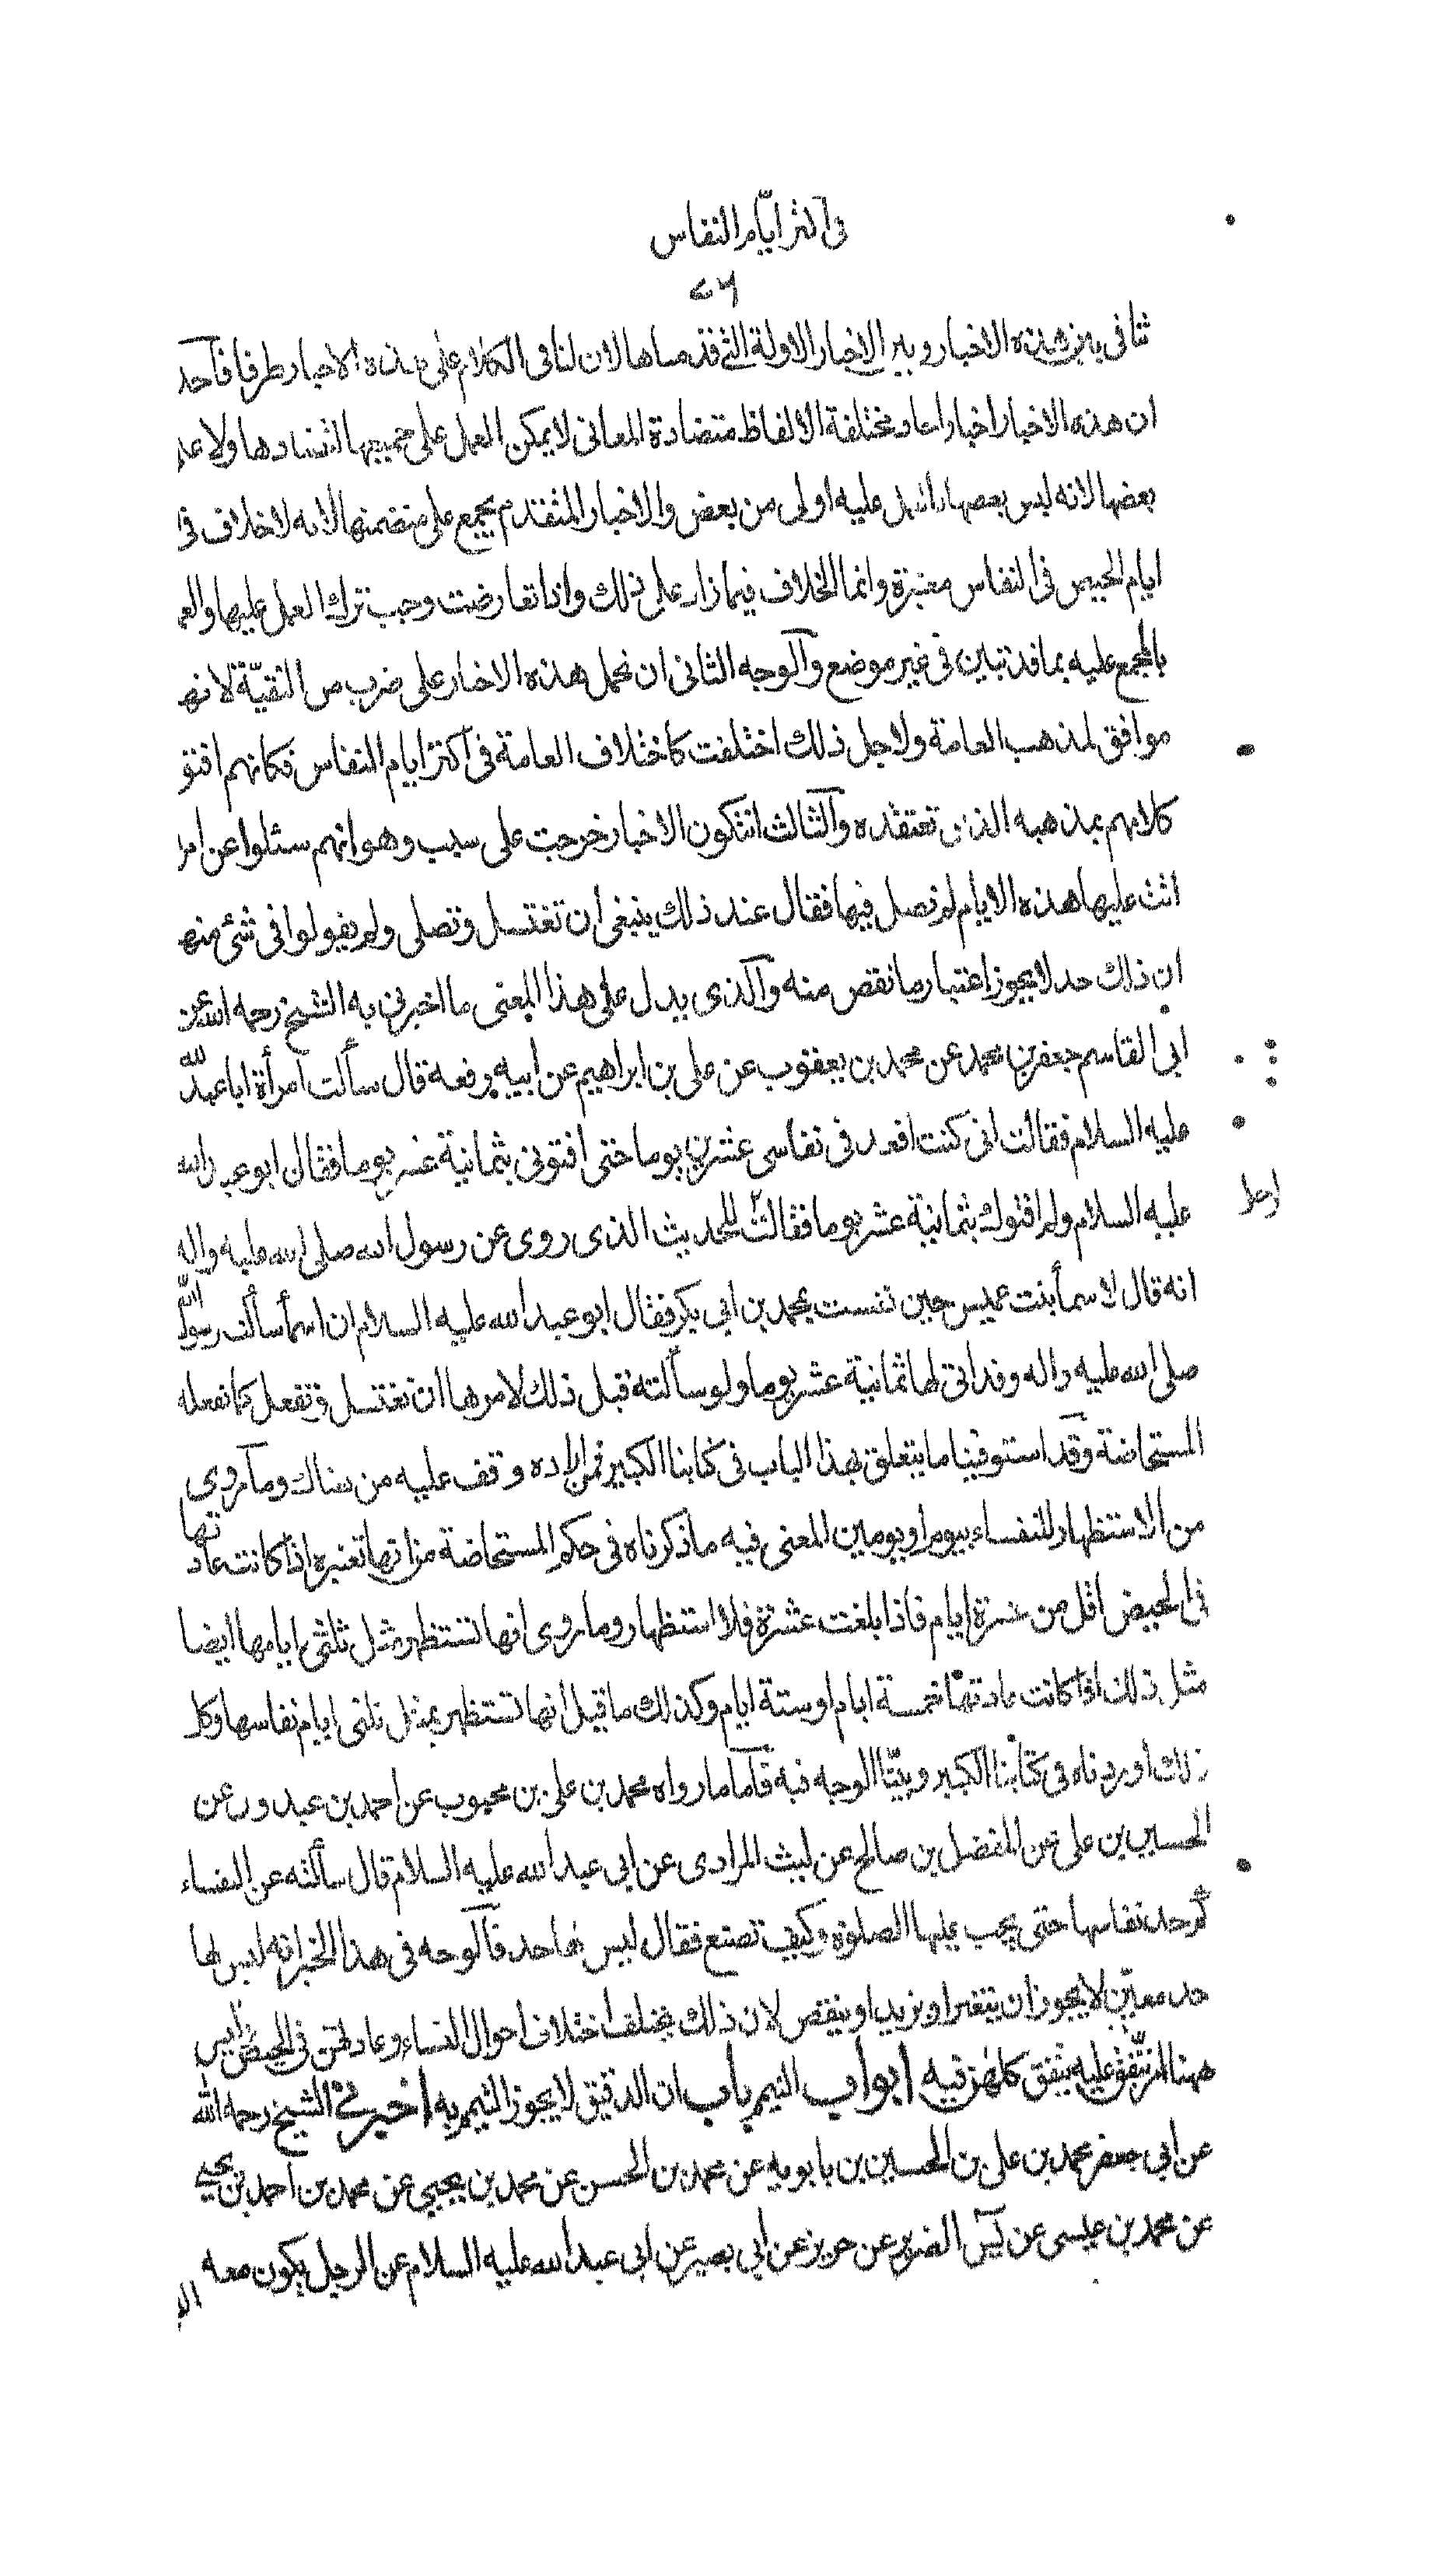 فى اكثر ايّام النفاس
٧٦
تنافى بين هذه الاخبار وبين الاخبار الاولة التى قدمناها لان لنا فى الكلام على هذه الاخبار طرقا فاحد
ان هذه الاخبار اخبار احاد مختلفة الالفاظ متضادة المعانى لا يمكن العمل على جميعها لتضادها ولا على
بعضها لانه ليس بعضها بالعمل عليه اولى من بعض والاخبار المتقدم يجمع على متضمنها لانه لا خلاف فى
ايام الحيض فى النفاس معتبرة وانما الخلاف فيما زاد على ذلك واذا تعارضت وجب ترك العمل عليها والعم
بالمجمع عليه بما قد تبين فى غير موضع والوجه الثانى ان نحمل هذه الاخبار على ضرب من التقيّة لانه
موافق لمذهب العامة ولاجل ذلك اختلفت كاختلاف العامة فى اكثر ايام النفاس فكانهم افتو
كلامهم بمذهبه الذى تعتقده والثالث ان تكون الاخبار خرجت على سبب وهو انهم سئلوا عن امر
اتت عليها هذه الايام لم تصل فيها فقال عند ذلك ينبغى ان تغتسل وتصلى ولم يقولوا فى شئ منه
ان ذلك حد لا يجوز اعتبار ما نقص منه والذى يدل على هذا المعنى ما اخبرنى به الشيخ رحمه الله عن
ابى القاسم جعفر بن محمد عن محمد بن يعقوب عن على بن ابراهيم عن ابيه رفعه قال سألت امرأة ابا عبد الله
عليه السلام فقالت انى كنت اقعد فى نفاسى عشرين يوما حتى افتونى بثمانية عشر يوما فقال ابو عبد الله
عليه السلام ولم افتوك بثمانية عشر يوما فقالت للحديث الذى روى عن رسول الله صلى الله عليه واله
انه قال لاسمأ بنت عميس حين نفست بمحمد بن ابى بكر فقال ابو عبد الله عليه السلام ان اسمأ سألت رسول الله
صلى الله عليه واله وقد اتى لها ثمانية عشر يوما ولو سألته قبل ذلك لامرها ان تغتسل وتفعل كما تفعله
المستحاضة وقد استوفينا ما يتعلق بهذا الباب فى كتابنا الكبير فمن اراده وقف عليه من هناك وما روى
من الاستظهار للنفساء بيوم او يومين المعنى فيه ما ذكرناه فى حكم المستحاضة من انها تعتبره اذا كانت عادتها
فى الحيض اقل من عشرة ايام فاذا بلغت عشرة فلا استظهار وما روى انها تستظهر بمثل ثلثى ايامها ايضا
مثل ذلك اذا كانت عادتها خمسة ايام او ستة ايام وكذلك ما قيل انها تستظهر بمثل ثلثى ايام نفاسها وكل
ذلك اوردناه فى كتابنا الكبير وبيّنّا الوجه فيه فاما ما رواه محمد بن على بن محبوب عن احمد بن عبدور عن
الحسين بن على عن المفضل بن صالح عن ليث المرادى عن ابى عبد الله عليه السلام قال سألته عن النفساء
كم حد نفاسها حتى يجب عليها الصلوة وكيف تصنع فقال ليس لها حد فالوجه فى هذا الخبر انه ليس لها
حد معيّن لا يجوز ان يتغير او يزيد او ينقص لان ذلك يختلف اختلاف احوال النساء وعادتهن فى الحيض وليس
ههنا امر يتّفق عليه يتفق كلهن فيه ابواب التيمم باب ان الدقيق لا يجوز التيمم به اخبرنى الشيخ رحمه الله
عن ابى جعفر محمد بن على بن الحسين بن بابويه عن محمد بن الحسن عن محمد بن يحيى عن محمد بن احمد بن يحيى
عن محمد بن عيسى عن يس الضرير عن حريز عن ابى بصير عن ابى عبد الله عليه السلام عن الرجل يكون معه